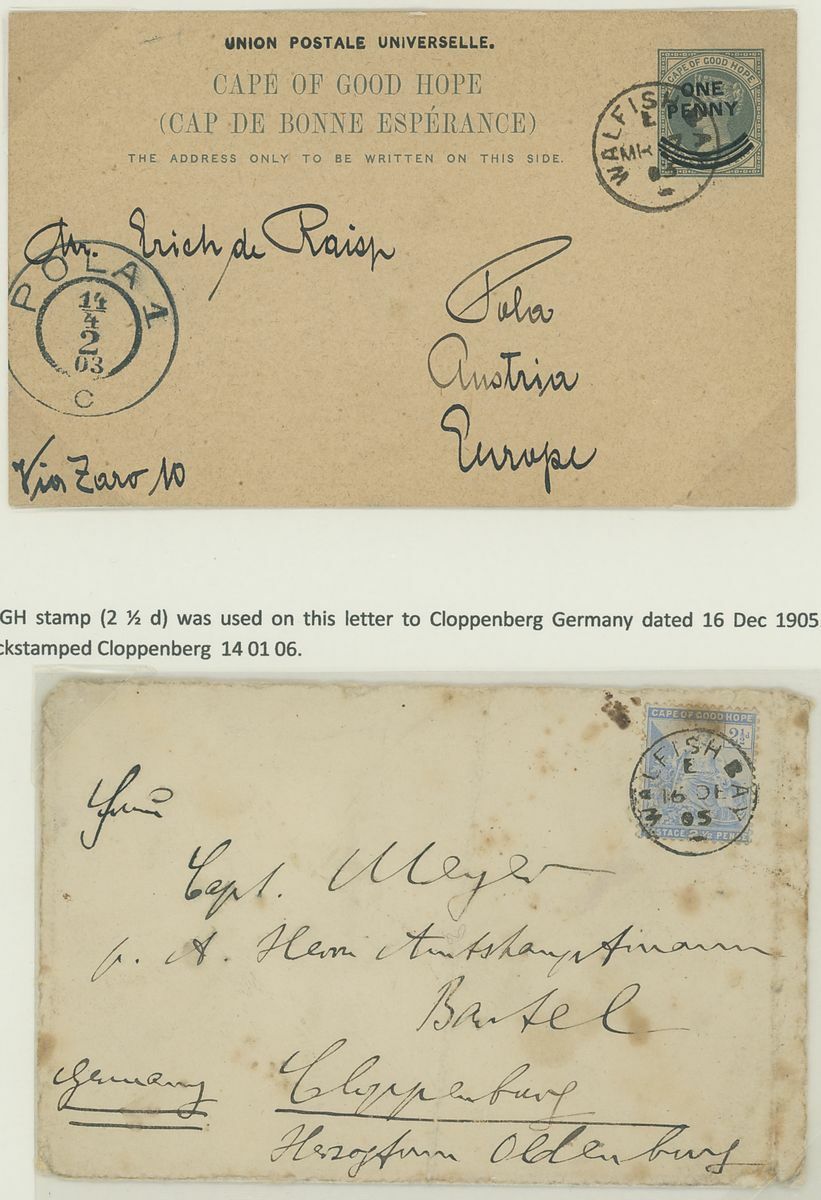 UNION POSTALE UNIVERSELLE.
CAPE OF GOOD HOPE
(CAP DE BONNE ESPÉRANCE)
THE ADDRESS ONLY TO BE WRITTEN ON THIS SIDE.
CAPE OF GOOD HOPE
ONE
PENNY
WALFISH BAY
E
MR
Mr. Erich de Raisp
POLA 1
14
4
2
03
C
Pola
Austria
Europe
Via Zaro 10
GH stamp (2 ½ d) was used on this letter to Cloppenberg Germany dated 16 Dec 1905
ckstamped Cloppenberg 14 01 06.
CAPE OF GOOD HOPE
2½d
WALFISH BAY
E
16 DE
05
STAGE 2½ PENCE
Herrn
Capt. Meyer
p. A. Herrn Amtshauptmann
Bartel
Germany
Cloppenburg
Herzogtum Oldenburg